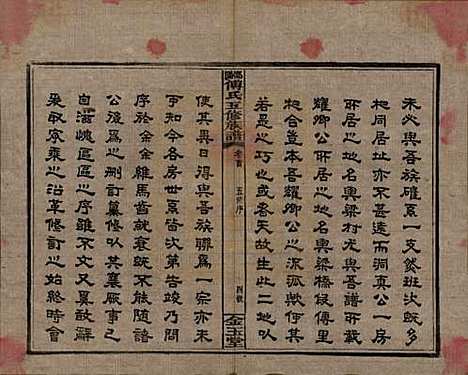 未必與吾族確系一支然班次既
相同居址亦不甚遠而洞真公一房
所居之地名與梁村尤與吾譜所載
耀卿公所居之地名與梁橋候傳里
相合豈本吾耀卿公之派流與何其
若是之巧也或者天故生此二公以
傅氏五修族譜
卷首
五修序
四號
金玉堂
使其異日得與吾族聯為一宗亦未
可知今各房世系告次第告竣乃問
序於余余雖馬齒就衰既不能隨諸
公後為之刪訂纂修以其襄厥事已
自滋愧區區之序雖不文又奚敢辭
爰取家乘之沿革修訂之始終時會